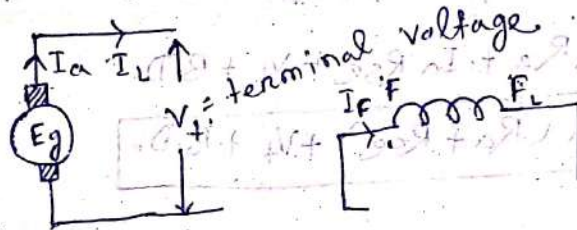 Ia IL
Eg
Vt = terminal voltage
IF F FL